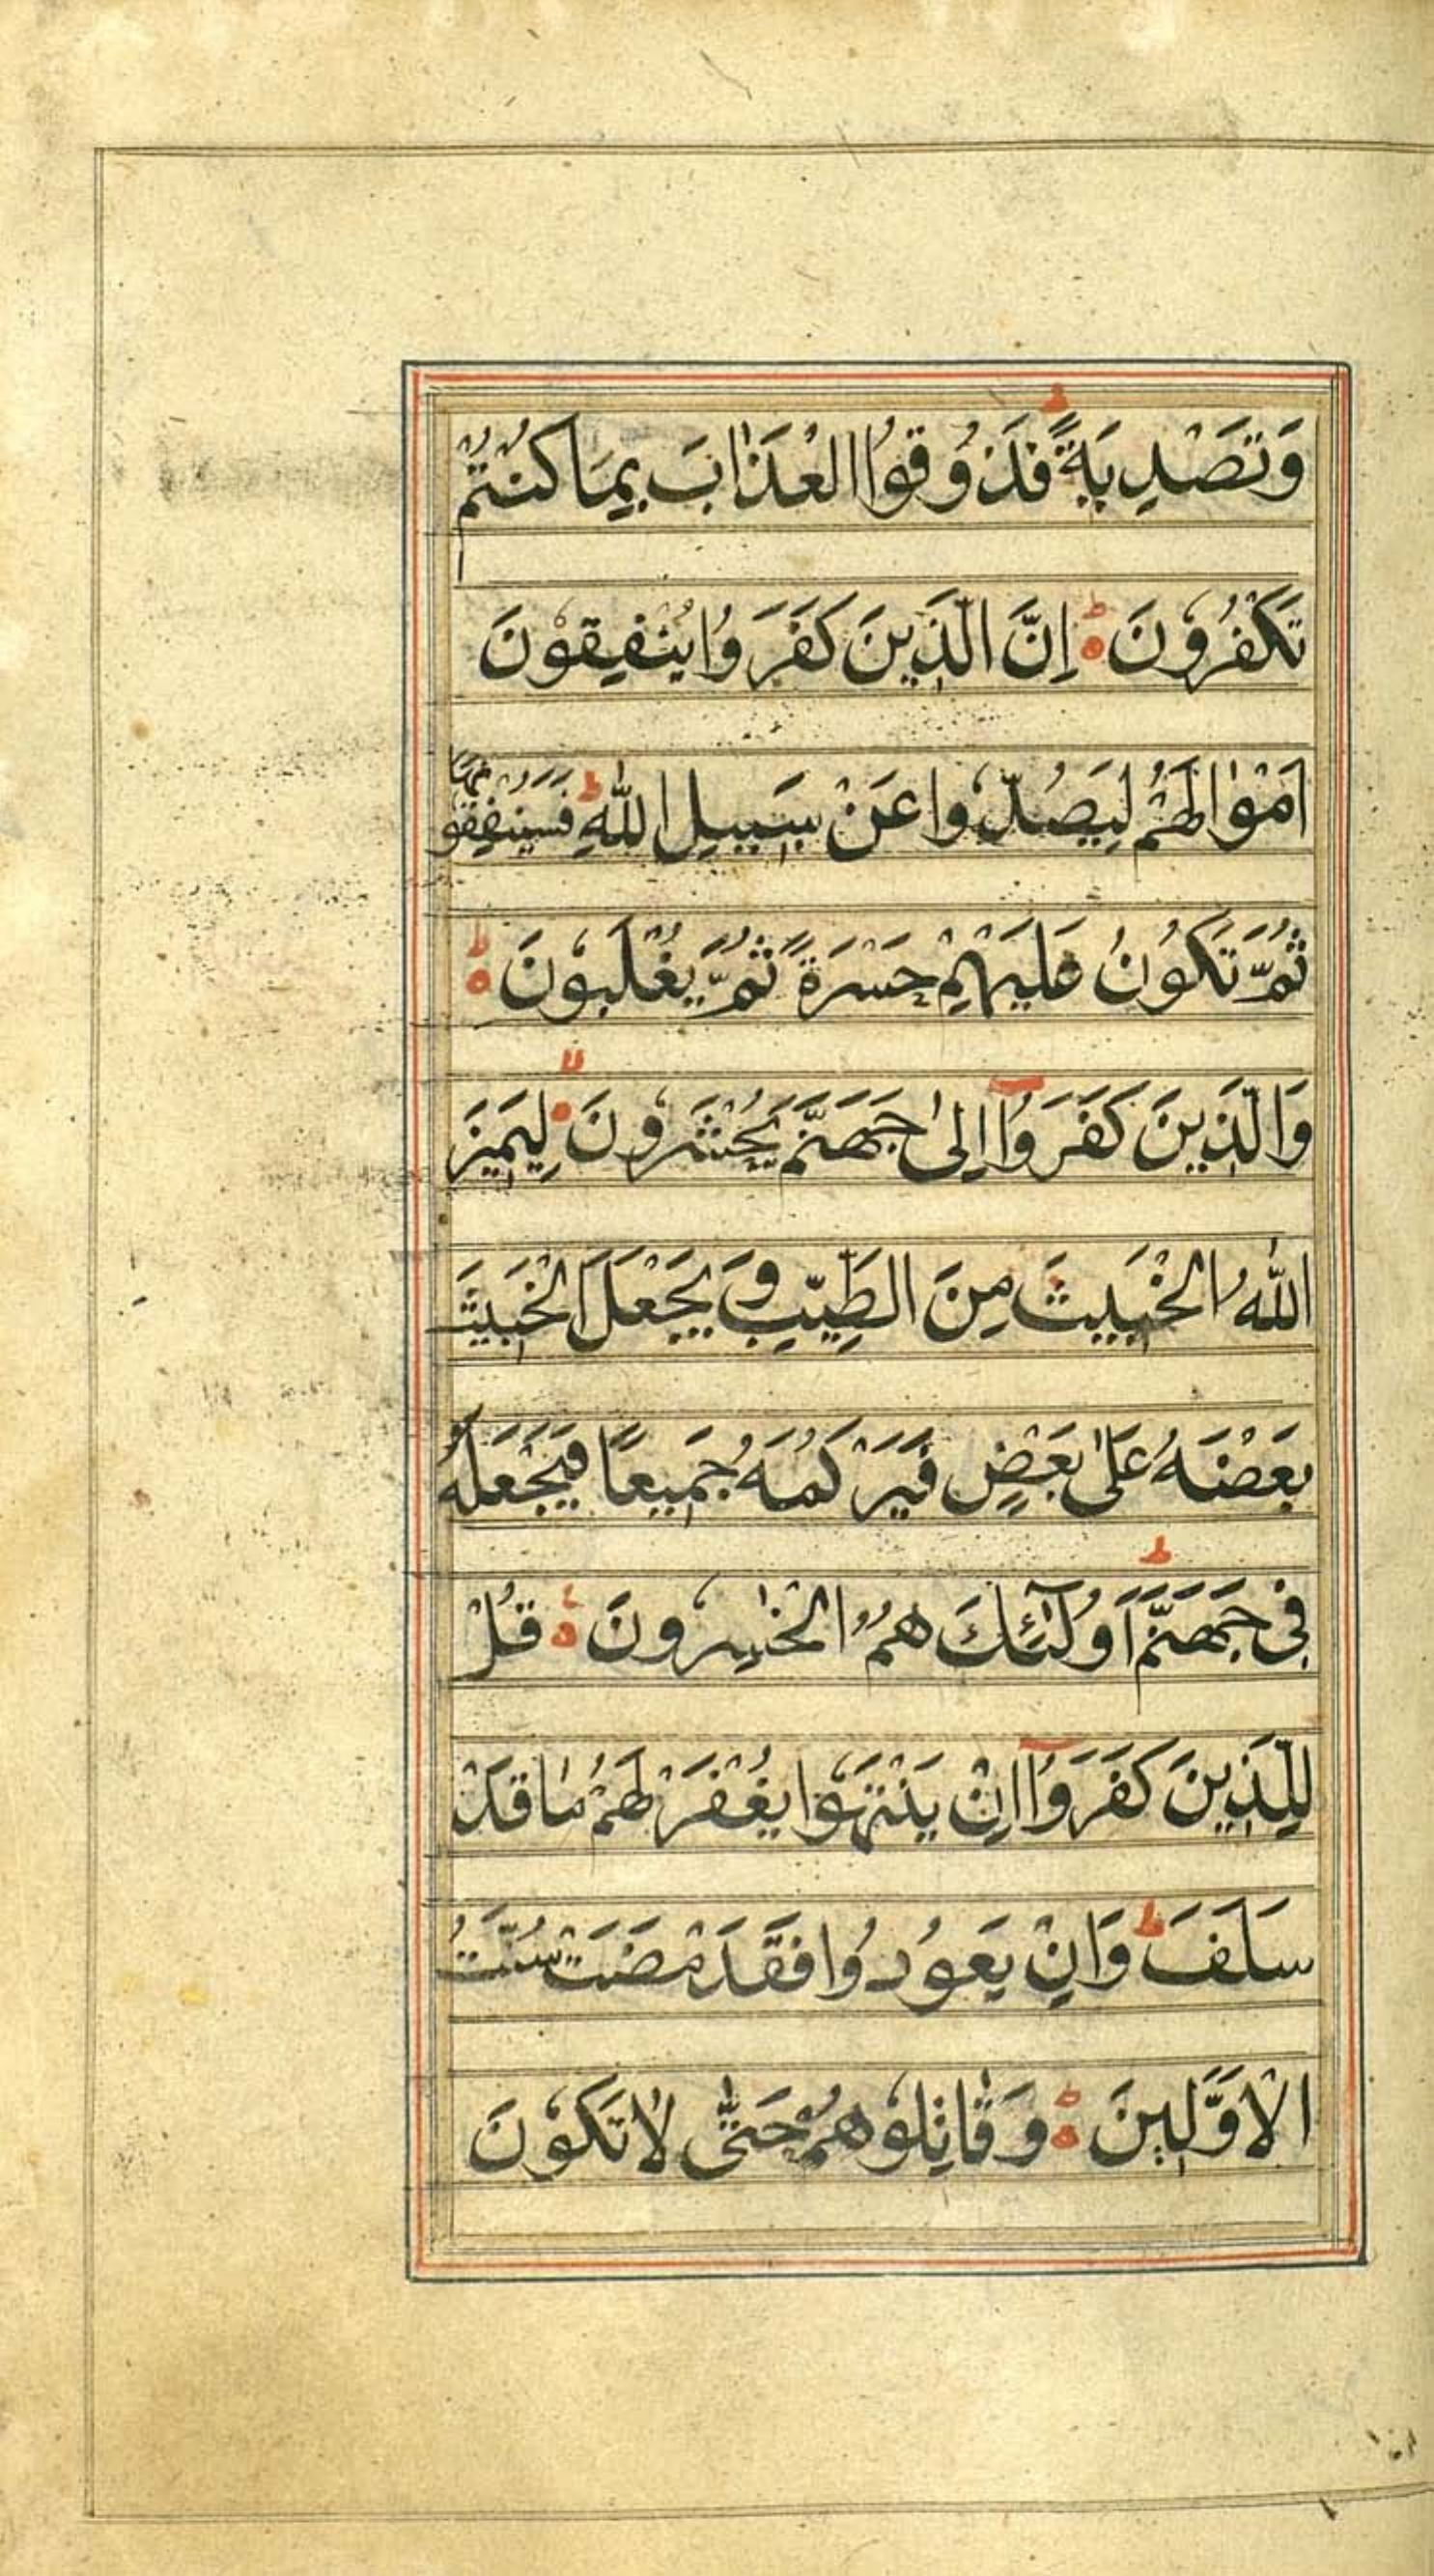 وَتَصْدِيَةً ؕ فَذُوقُوا الْعَذَابَ بِمَا كُنْتُمْ
تَكْفُرُوْنَ ؕ اِنَّ الَّذِينَ كَفَرُوا يُنْفِقُوْنَ
اَمْوَالَهُمْ لِيَصُدُّوْا عَنْ سَبِيلِ اللّٰهِ ؕ فَسَيُنْفِقُوْنَهَا
ثُمَّ تَكُوْنُ عَلَيْهِمْ حَسْرَةً ثُمَّ يُغْلَبُوْنَ ؕ
وَالَّذِينَ كَفَرُوْۤا اِلٰى جَهَنَّمَ يُحْشَرُوْنَ ۙ لِيَمِيْزَ
اللّٰهُ الْخَبِيثَ مِنَ الطَّيِّبِ وَيَجْعَلَ الْخَبِيثَ
بَعْضَهُ عَلٰى بَعْضٍ فَيَرْكُمَهُ جَمِيعًا فَيَجْعَلَهُ
فِي جَهَنَّمَ ؕ اُولٰٓئِكَ هُمُ الْخٰسِرُوْنَ ؕ قُلْ
لِلَّذِينَ كَفَرُوْۤا اِنْ يَنْتَهُوْا يُغْفَرْ لَهُمْ مَا قَدْ
سَلَفَ ؕ وَاِنْ يَعُوْدُوا فَقَدْ مَضَتْ سُنَّتُ
الْاَوَّلِينَ ؕ وَقَاتِلُوْهُمْ حَتّٰى لَا تَكُوْنَ